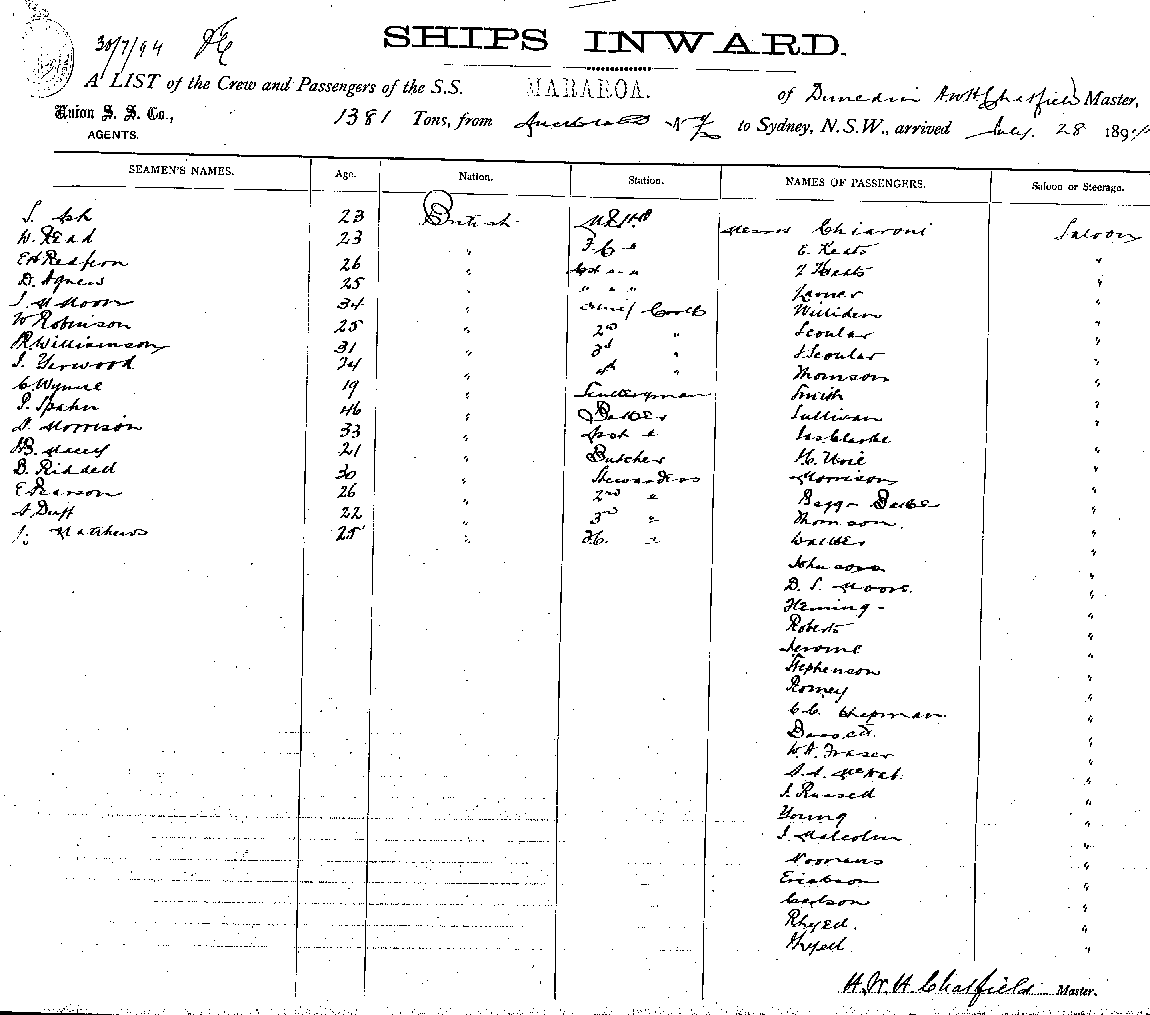 30/7/94
SHIPS INWARD.
A LIST of the Crew and Passengers of the S.S. MARAROA. of Dunedin A.W.H. Chatfield Master,
Union S. S. Co.,
AGENTS.
1381 Tons, from Auckland NZ to Sydney, N.S.W., arrived July 28 1894
SEAMEN'S NAMES. Age. Nation. Station. NAMES OF PASSENGERS. Saloon or Steerage.
J. Ash 23 British Messrs Chiaroni Saloon
W. Read 23 " F C " E. Keats "
E H Redfern 26 " " " Keats "
D. Agnew 25 " " " " "
J. M Moor 34 " Chief Cook "
W Robinson 25 " 2nd " Scoular "
R Williamson 31 " 3d " J. Scoular "
J. Yerwood 24 " 4th " Thomson "
C. Wynne 19 " Sculleryman Smith "
P. Spahn 46 " Baker Sullivan "
A. Morrison 33 " Asst " Jas Clarke "
21 " Butcher "
30 " Stewardess Morrison "
E Pearson 26 " 2nd " "
A Duff 22 " 3rd " Thomson. "
J. Matthews 25 " " Walker "
Johnson "
D. S. Moore. "
Fleming "
Roberts "
Jerome "
Stephenson "
Romey "
C. C. Chapman. "
"
W. A. Fraser "
McNab. "
J. Russell "
Young "
J. Malcolm "
"
Erickson "
Carlson "
"
"
A. W. H. Chatfield Master.